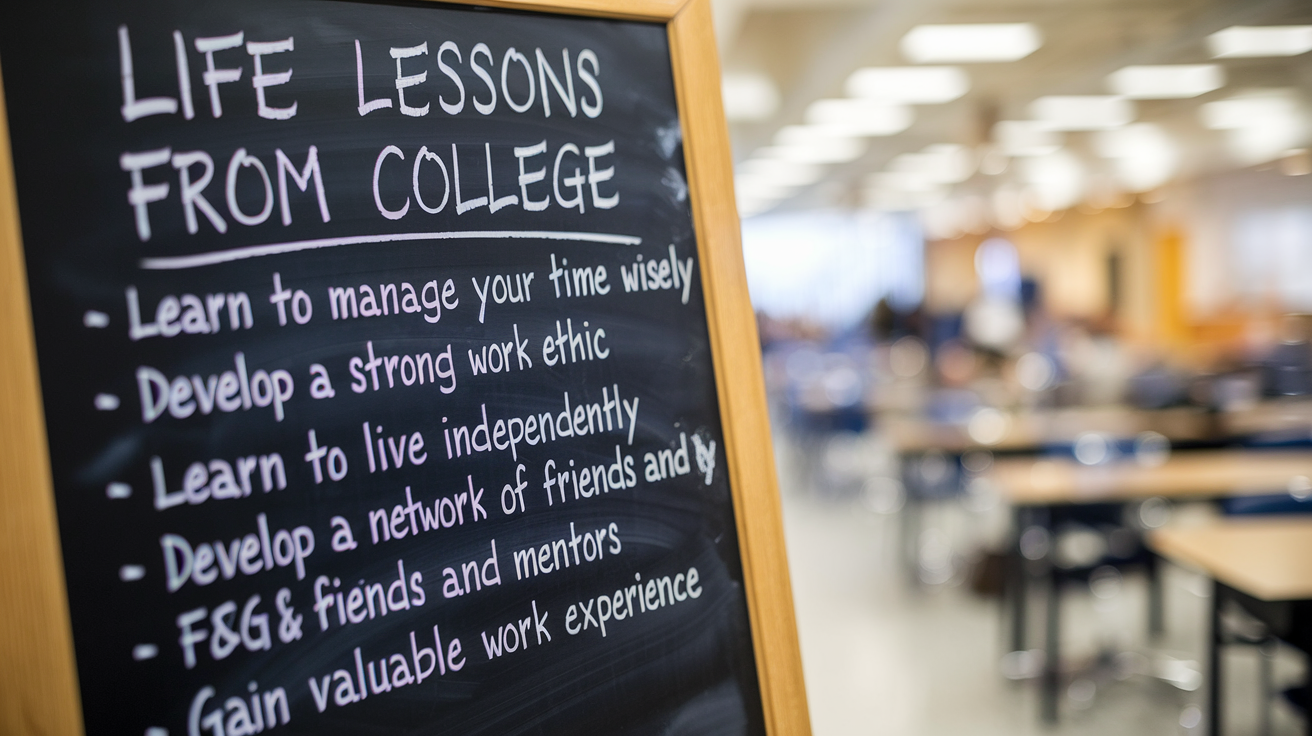 LIFE LESSONS
FROM COLLEGE
- Learn to manage your time wisely
- Develop a strong work ethic
- Learn to live independently
- Develop a network of friends and ly
- F&G & fiends and mentors
- Gain valuable work experience